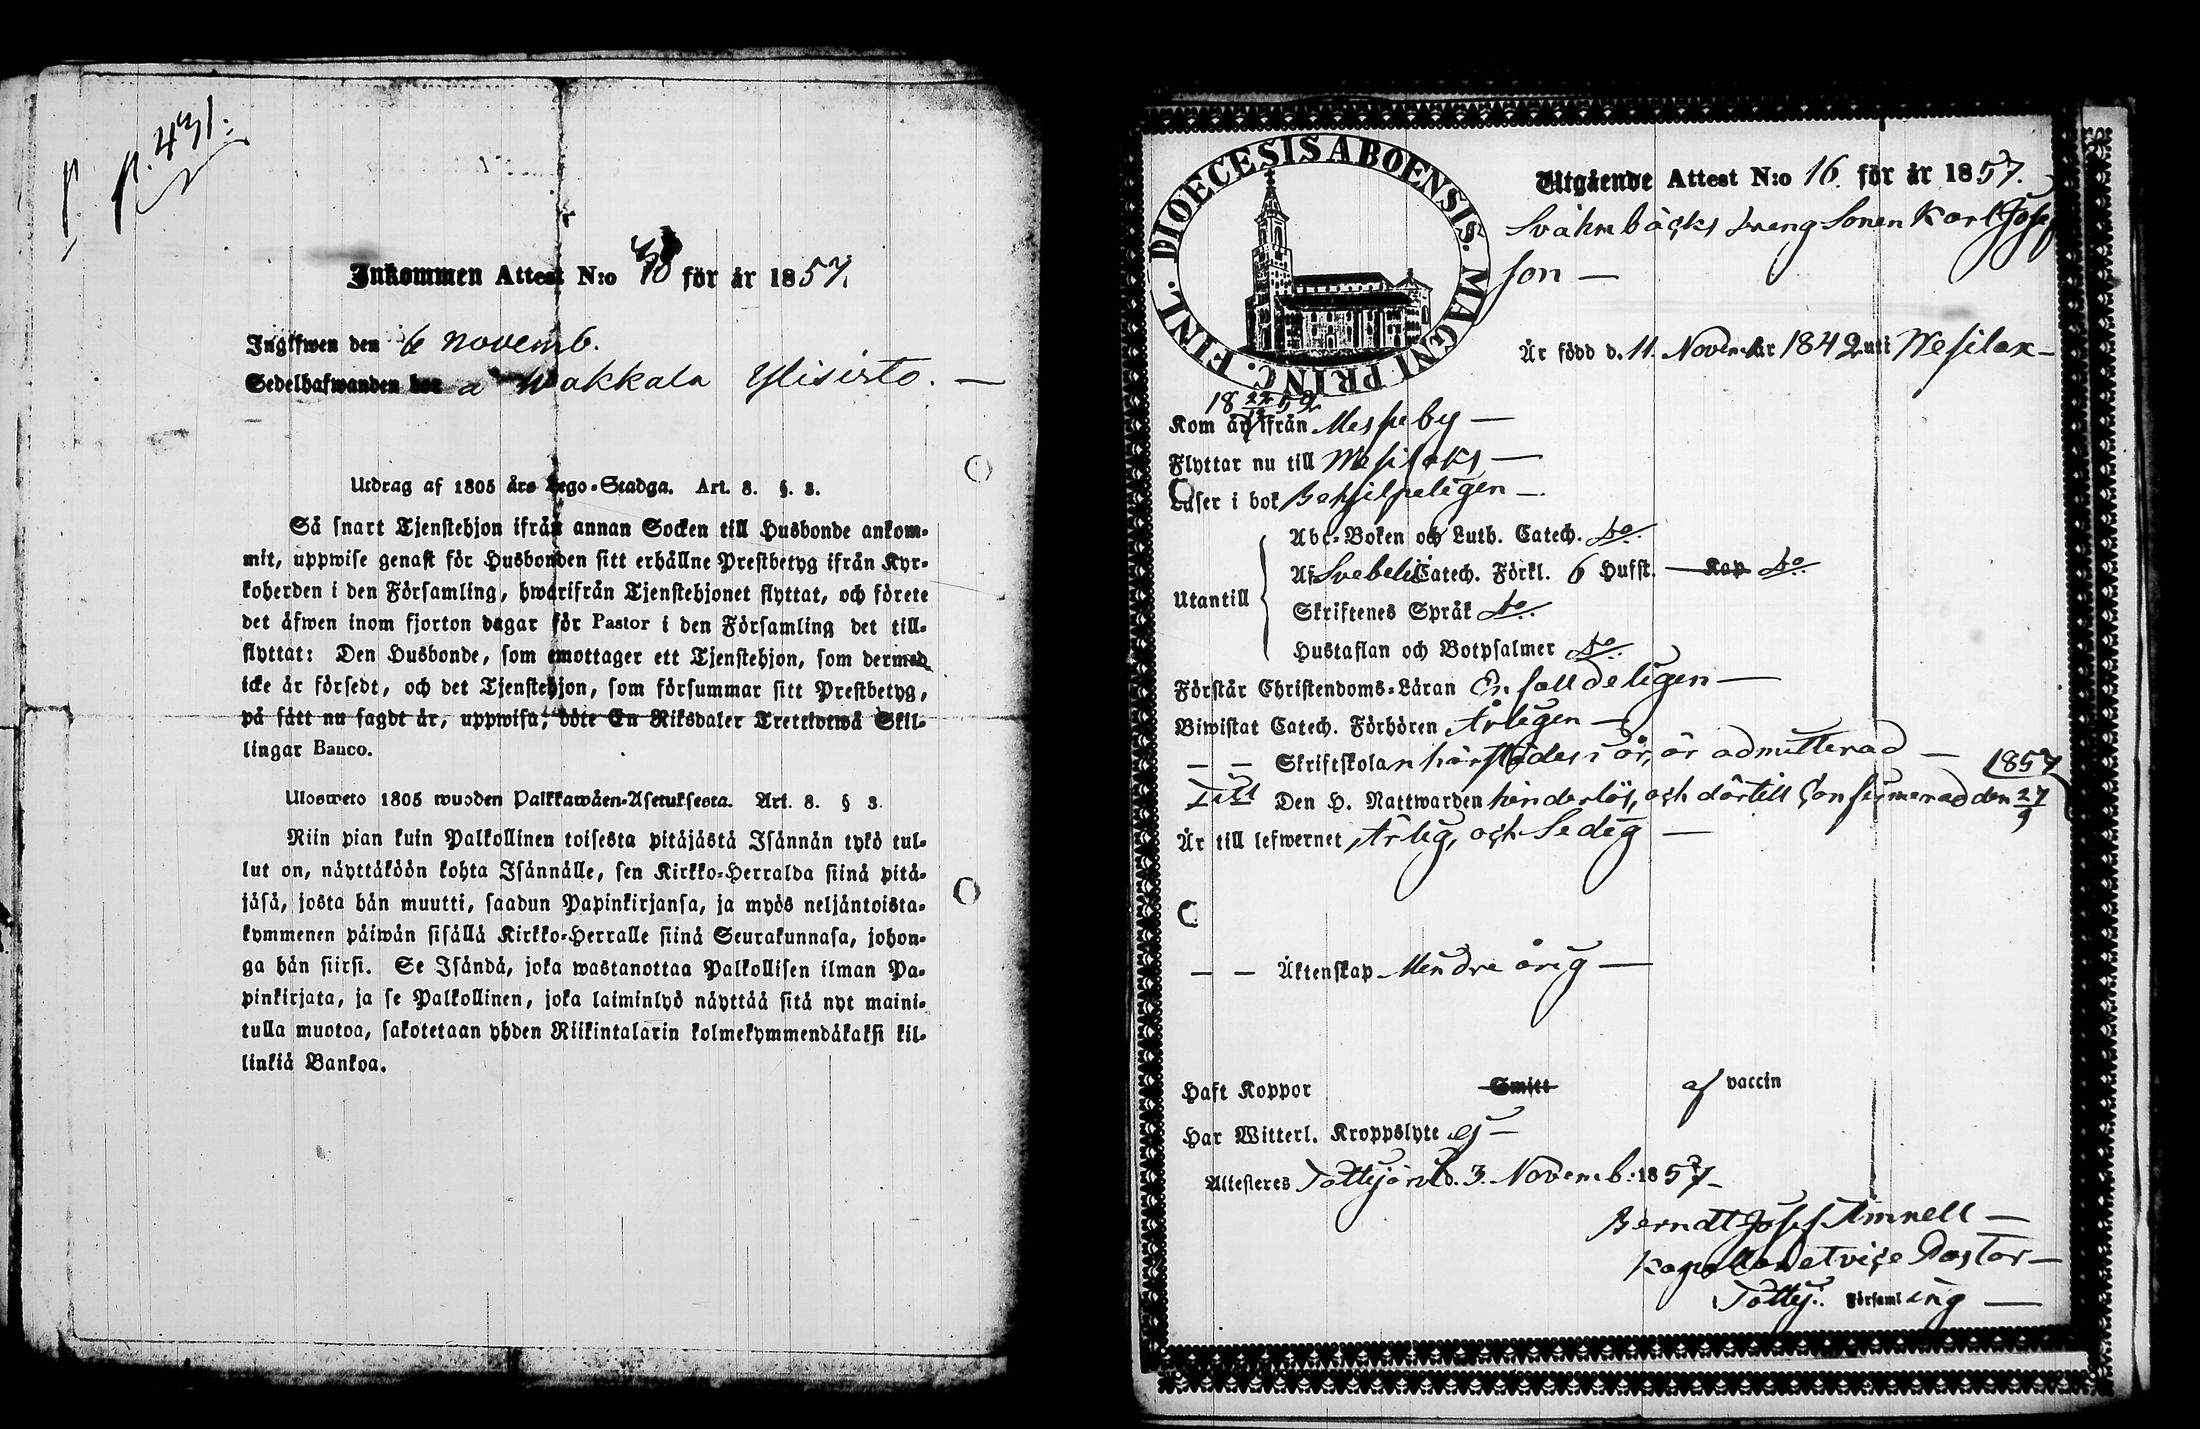 p. p. 431.
Inkommen Attest N:o 30 för år 1857.
Ingifwen den 6 novemb.
Sedelhafwanden bor a Wakkala Ylisirto. —
Utdrag af 1805 års Lego-Stadga. Art. 8. §. 3.
Så snart Tjenstehjon ifrån annan Socken till Husbonde ankom-
mit, uppwise genast för Husbonden sitt erhållne Prestbetyg ifrån Kyr-
koherden i den Församling, hwarifrån Tjenstehjonet flyttat, och förete
det äfwen inom fjorton dagar för Pastor i den Församling det till-
flyttat: Den Husbonde, som emottager ett Tjenstehjon, som dermed
icke är försedt, och det Tjenstehjon, som försummar sitt Prestbetyg,
på sätt nu sagdt är, uppwisa, böte En Riksdaler Trettiotwå Skil-
lingar Banco.
Ulosweto 1805 wuoden Palkkawäen-Asetuksesta. Art. 8. § 3.
Niin pian kuin Palkollinen toisesta pitäjästä Isännän tykö tul-
lut on, näyttäköön kohta Isännälle, sen Kirkko-Herralda siinä pitä-
jäsä, josta hän muutti, saadun Papinkirjansa, ja myös neljäntoista-
kymmenen päiwän sisällä Kirkko-Herralle siinä Seurakunnasa, johon-
ga hän siirsi. Se Isändä, joka wastanottaa Palkollisen ilman Pa-
pinkirjata, ja se Palkollinen, joka laiminlyö näyttää sitä nyt maini-
tulla muotoa, sakotetaan yhden Riikintalarin kolmekymmendäkaksi kil-
linkiä Bankoa.
DIOECESIS ABOENSIS. MAGNI PRINC. FINL.
Utgående Attest N:o 16. för år 1857.
Svahnbäcks dreng Sonen Karl Josef
son —
Är född d. 11. Novem. år 1842 uti Wesilax —
18 22/12 52
Kom år ifrån Messuby —
Flyttar nu till Wesilaks —
Läser i bok Behjelpeligen —
Utantill
Abc-Boken och Luth. Catech. do.
Af Svebelii Catech. Förkl. 6 Hufst. — Kap do.
Skriftenes Språk do.
Hustaflan och Botpsalmer do.
Förstår Christendoms-Läran Enfalldeligen —
Biwistat Catech. Förhören Årligen —
— — Skriftskolan härstädes i år, är admitterad — 1857
Till Den H. Nattwarden hinderlös, och därtill Confirmerad den 27/9
Är till lefwernet Ärlig, och Sedig —
— — Äktenskap Mindreårig —
Haft Koppor Smitt af vaccin
Har Witterl. Kroppslyte ej —
Attesteres Tottijärvi d. 3. Novemb. 1857 —
Berndt Josef Amnell —
Kapellan et vice Pastor —
i Tottij. Församling —